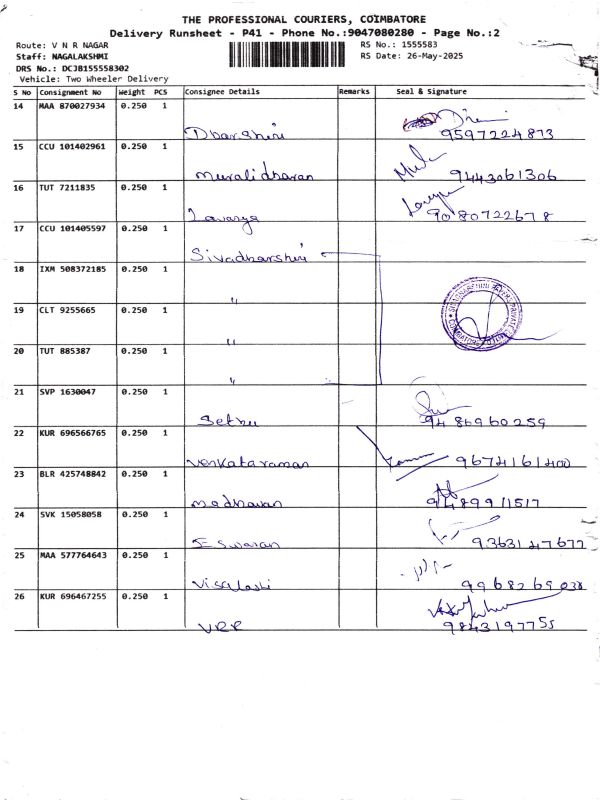 THE PROFESSIONAL COURIERS, COIMBATORE
Delivery Runsheet - P41 - Phone No.:9047080280 - Page No.:2
Route: V N R NAGAR
RS No.: 1555583
Staff: NAGALAKSHMI
RS Date: 26-May-2025
DRS No.: DCJB155558302
Vehicle: Two Wheeler Delivery
S No Consignment No Weight PCS Consignee Details Remarks Seal & Signature
14 MAA 870027934 0.250 1
Dharshini 9597224873
15 CCU 101402961 0.250 1
muralidharan 9443061306
16 TUT 7211835 0.250 1
Lavanya 9080722678
17 CCU 101405597 0.250 1
Sivadharshini
18 IXM 508372185 0.250 1
"
19 CLT 9255665 0.250 1
"
20 TUT 885387 0.250 1
"
21 SVP 1630047 0.250 1
Sethu 9486960259
22 KUR 696566765 0.250 1
Venkataraman 9674161400
23 BLR 425748842 0.250 1
madhavan 9489911517
24 SVK 15058058 0.250 1
Eswaran 9363147677
25 MAA 577764643 0.250 1
Visalashi 9968269038
26 KUR 696467255 0.250 1
VRR 9843197755